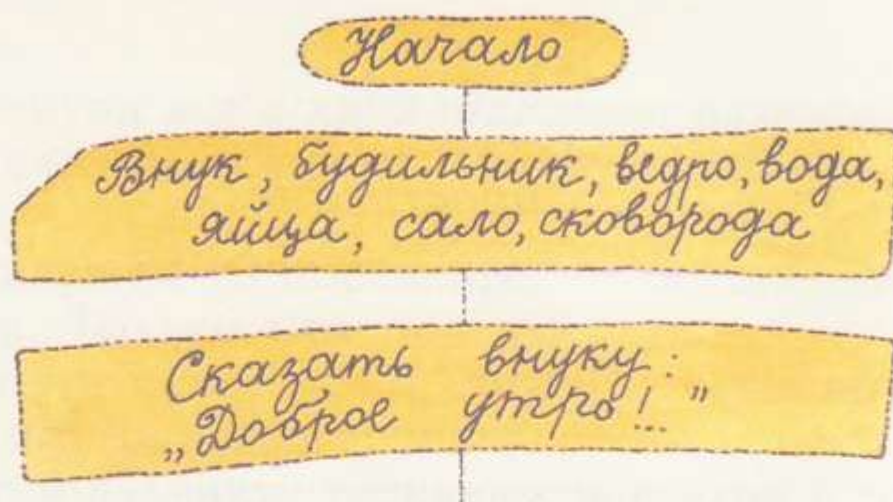 Начало
Внук, будильник, ведро, вода,
яйца, сало, сковорода
Сказать внуку:
„Доброе утро!.."